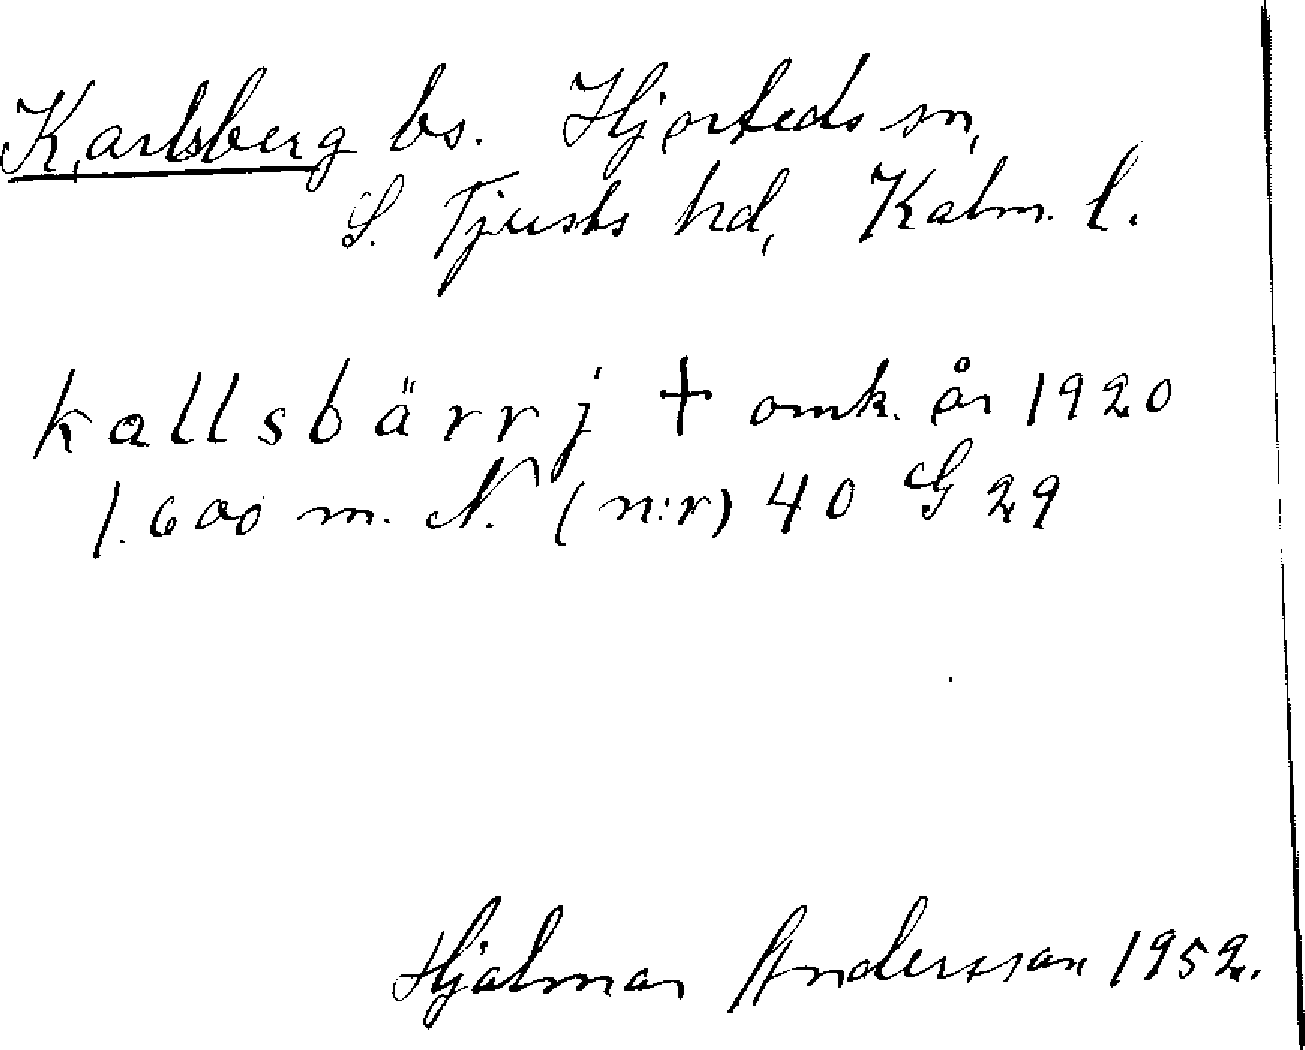 Karlsberg bs. Hjorteds sn,
S. Tjusts hd, Kalm. l.
kallsbärrj + omk. år 1920
1.600 m. N. (n:r) 40 G 29
Hjalmar Andersson 1952.